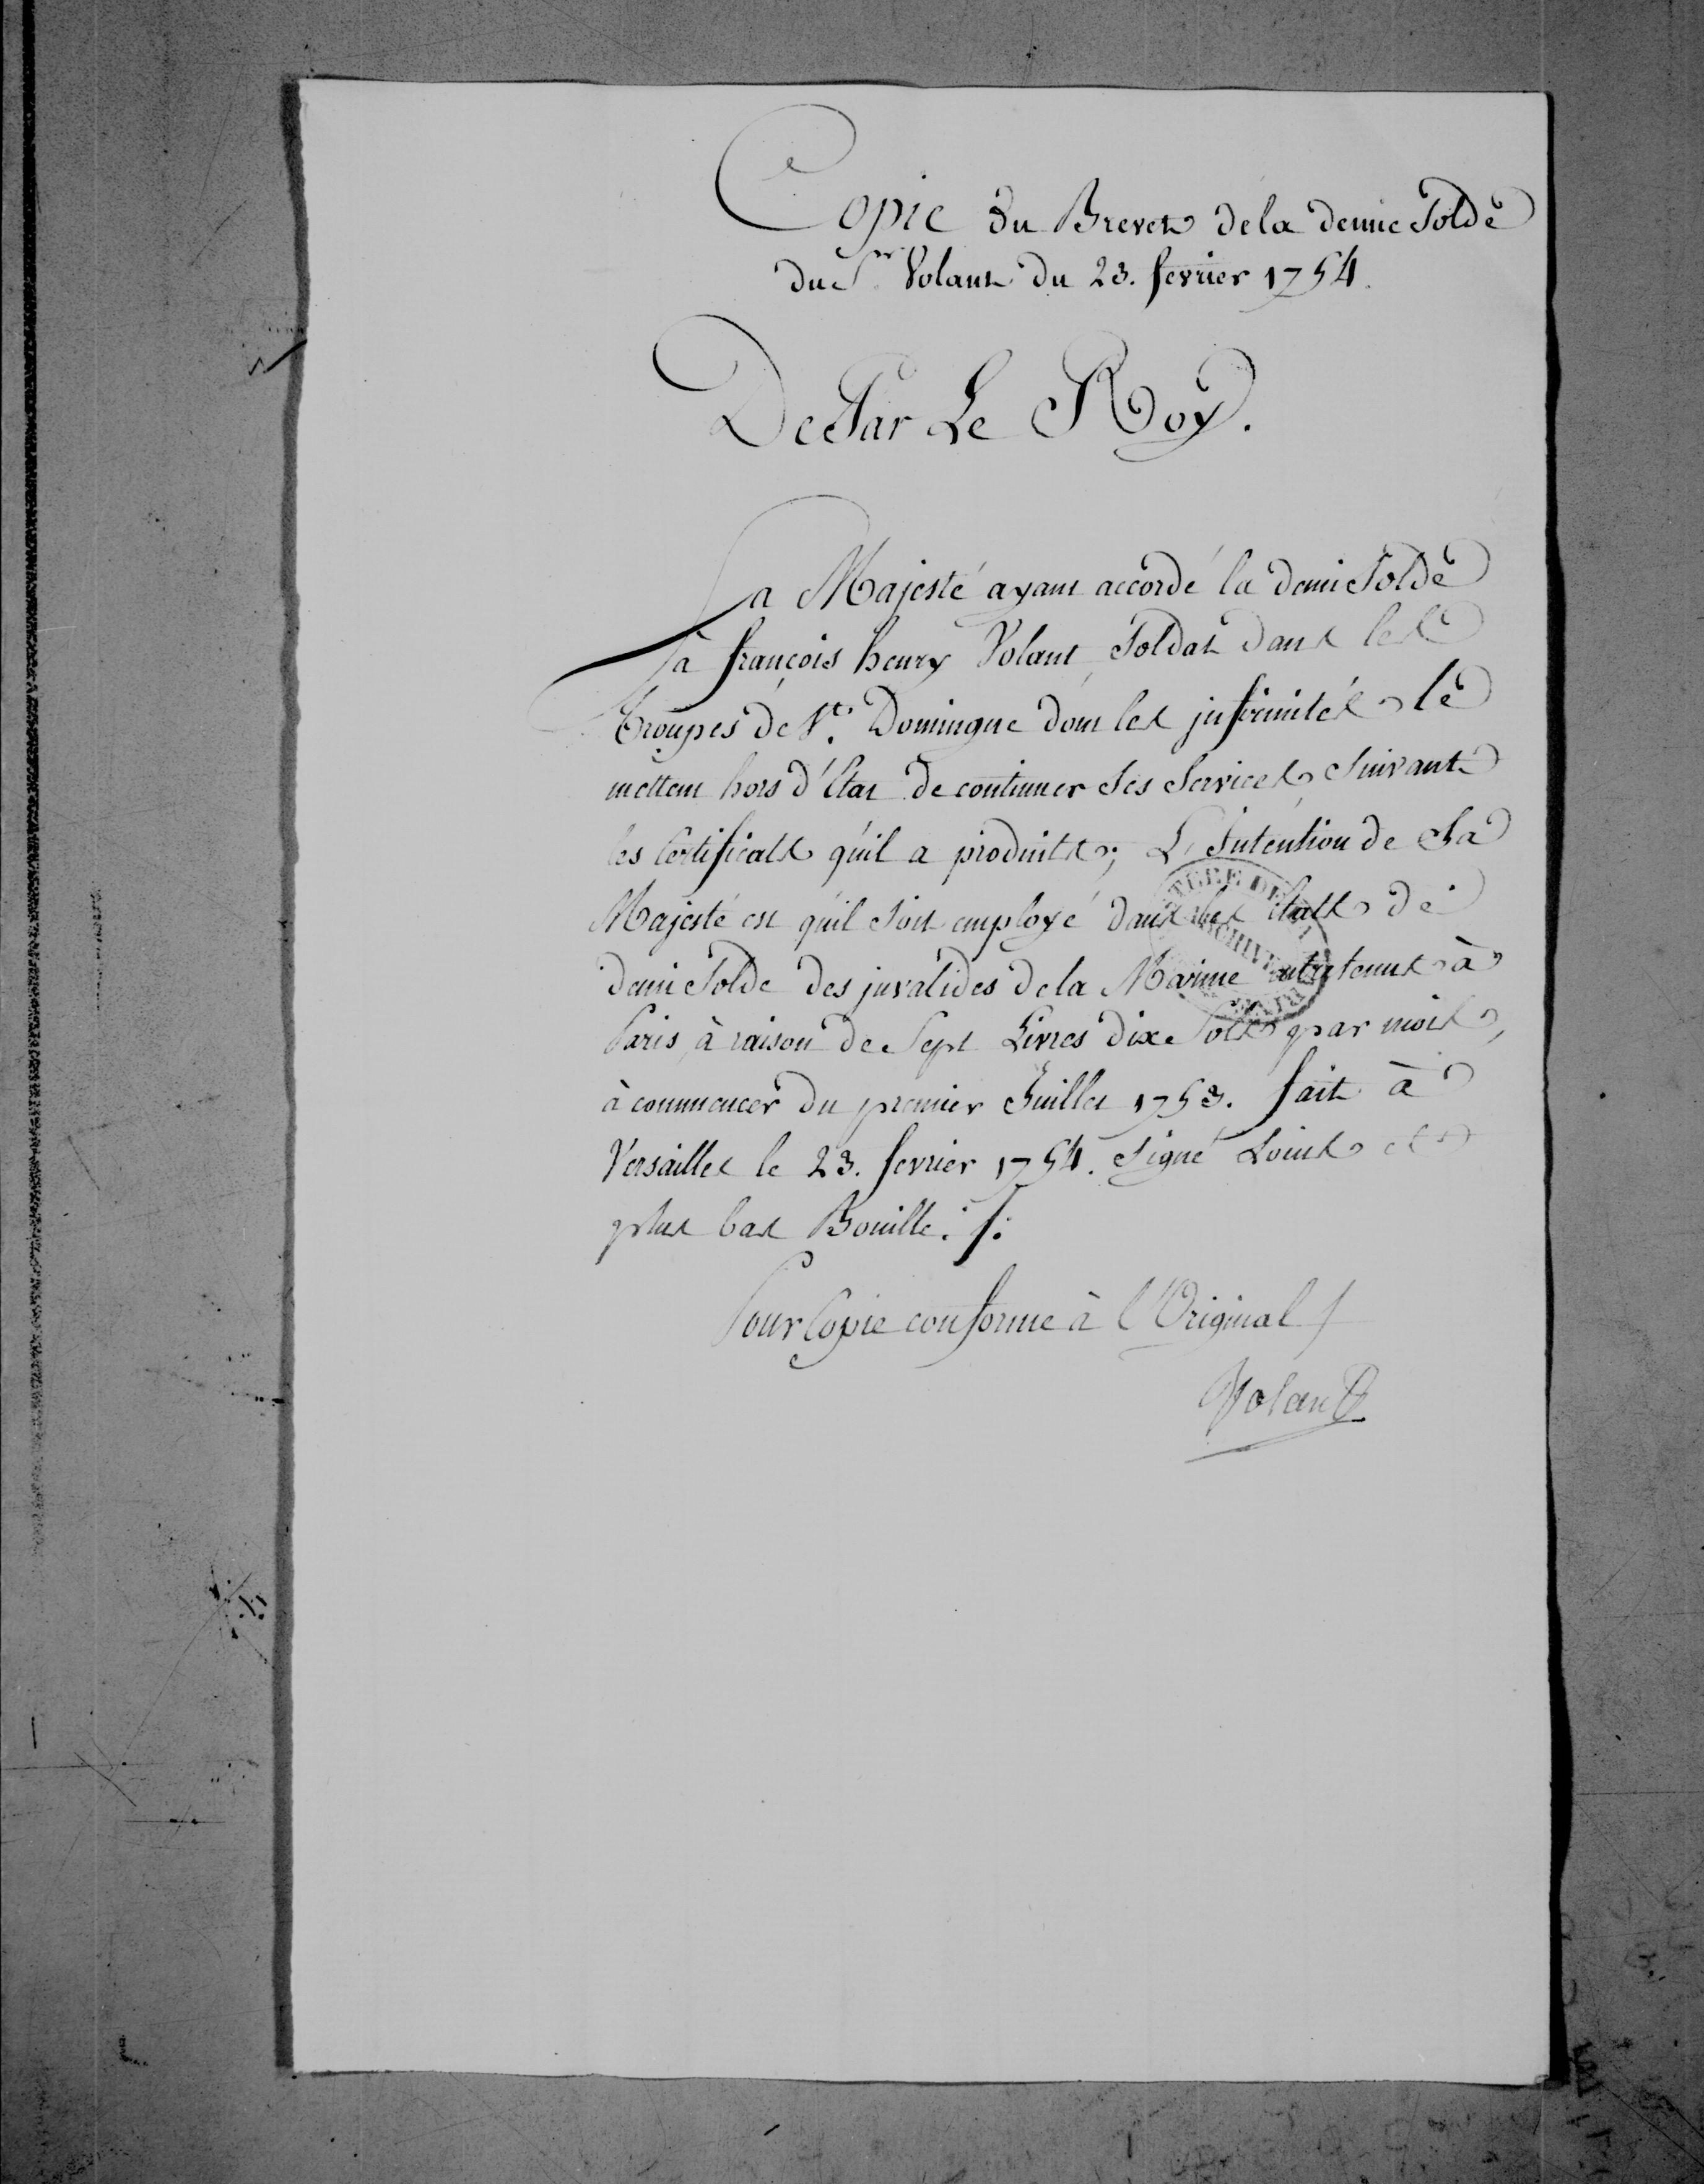 Copie du Brevet dela demie Solde
du Sr. Volant du 23. fevrier 1754.
De Par Le Roy.
Sa Majesté ayant accordé la demi Solde
à françois henry Volant, Soldat dans les
troupes de St. Domingue dont les infirmités le
mettent hors d'Etat de continuer Ses Services, Suivant
les Certificats qu'il a produits; L'Intention de Sa
Majesté est qu'il soit employé dans les états de
demi Solde des invalides dela Marine entretenus à
Paris, à raison de Sept Livres dix Sols par mois,
à commencer du premier Juillet 1753. fait à
Versailles le 23. fevrier 1754. Signé Louis et
plus bas Bouille ./.
Pour Copie conforme à l'Original /
Volant